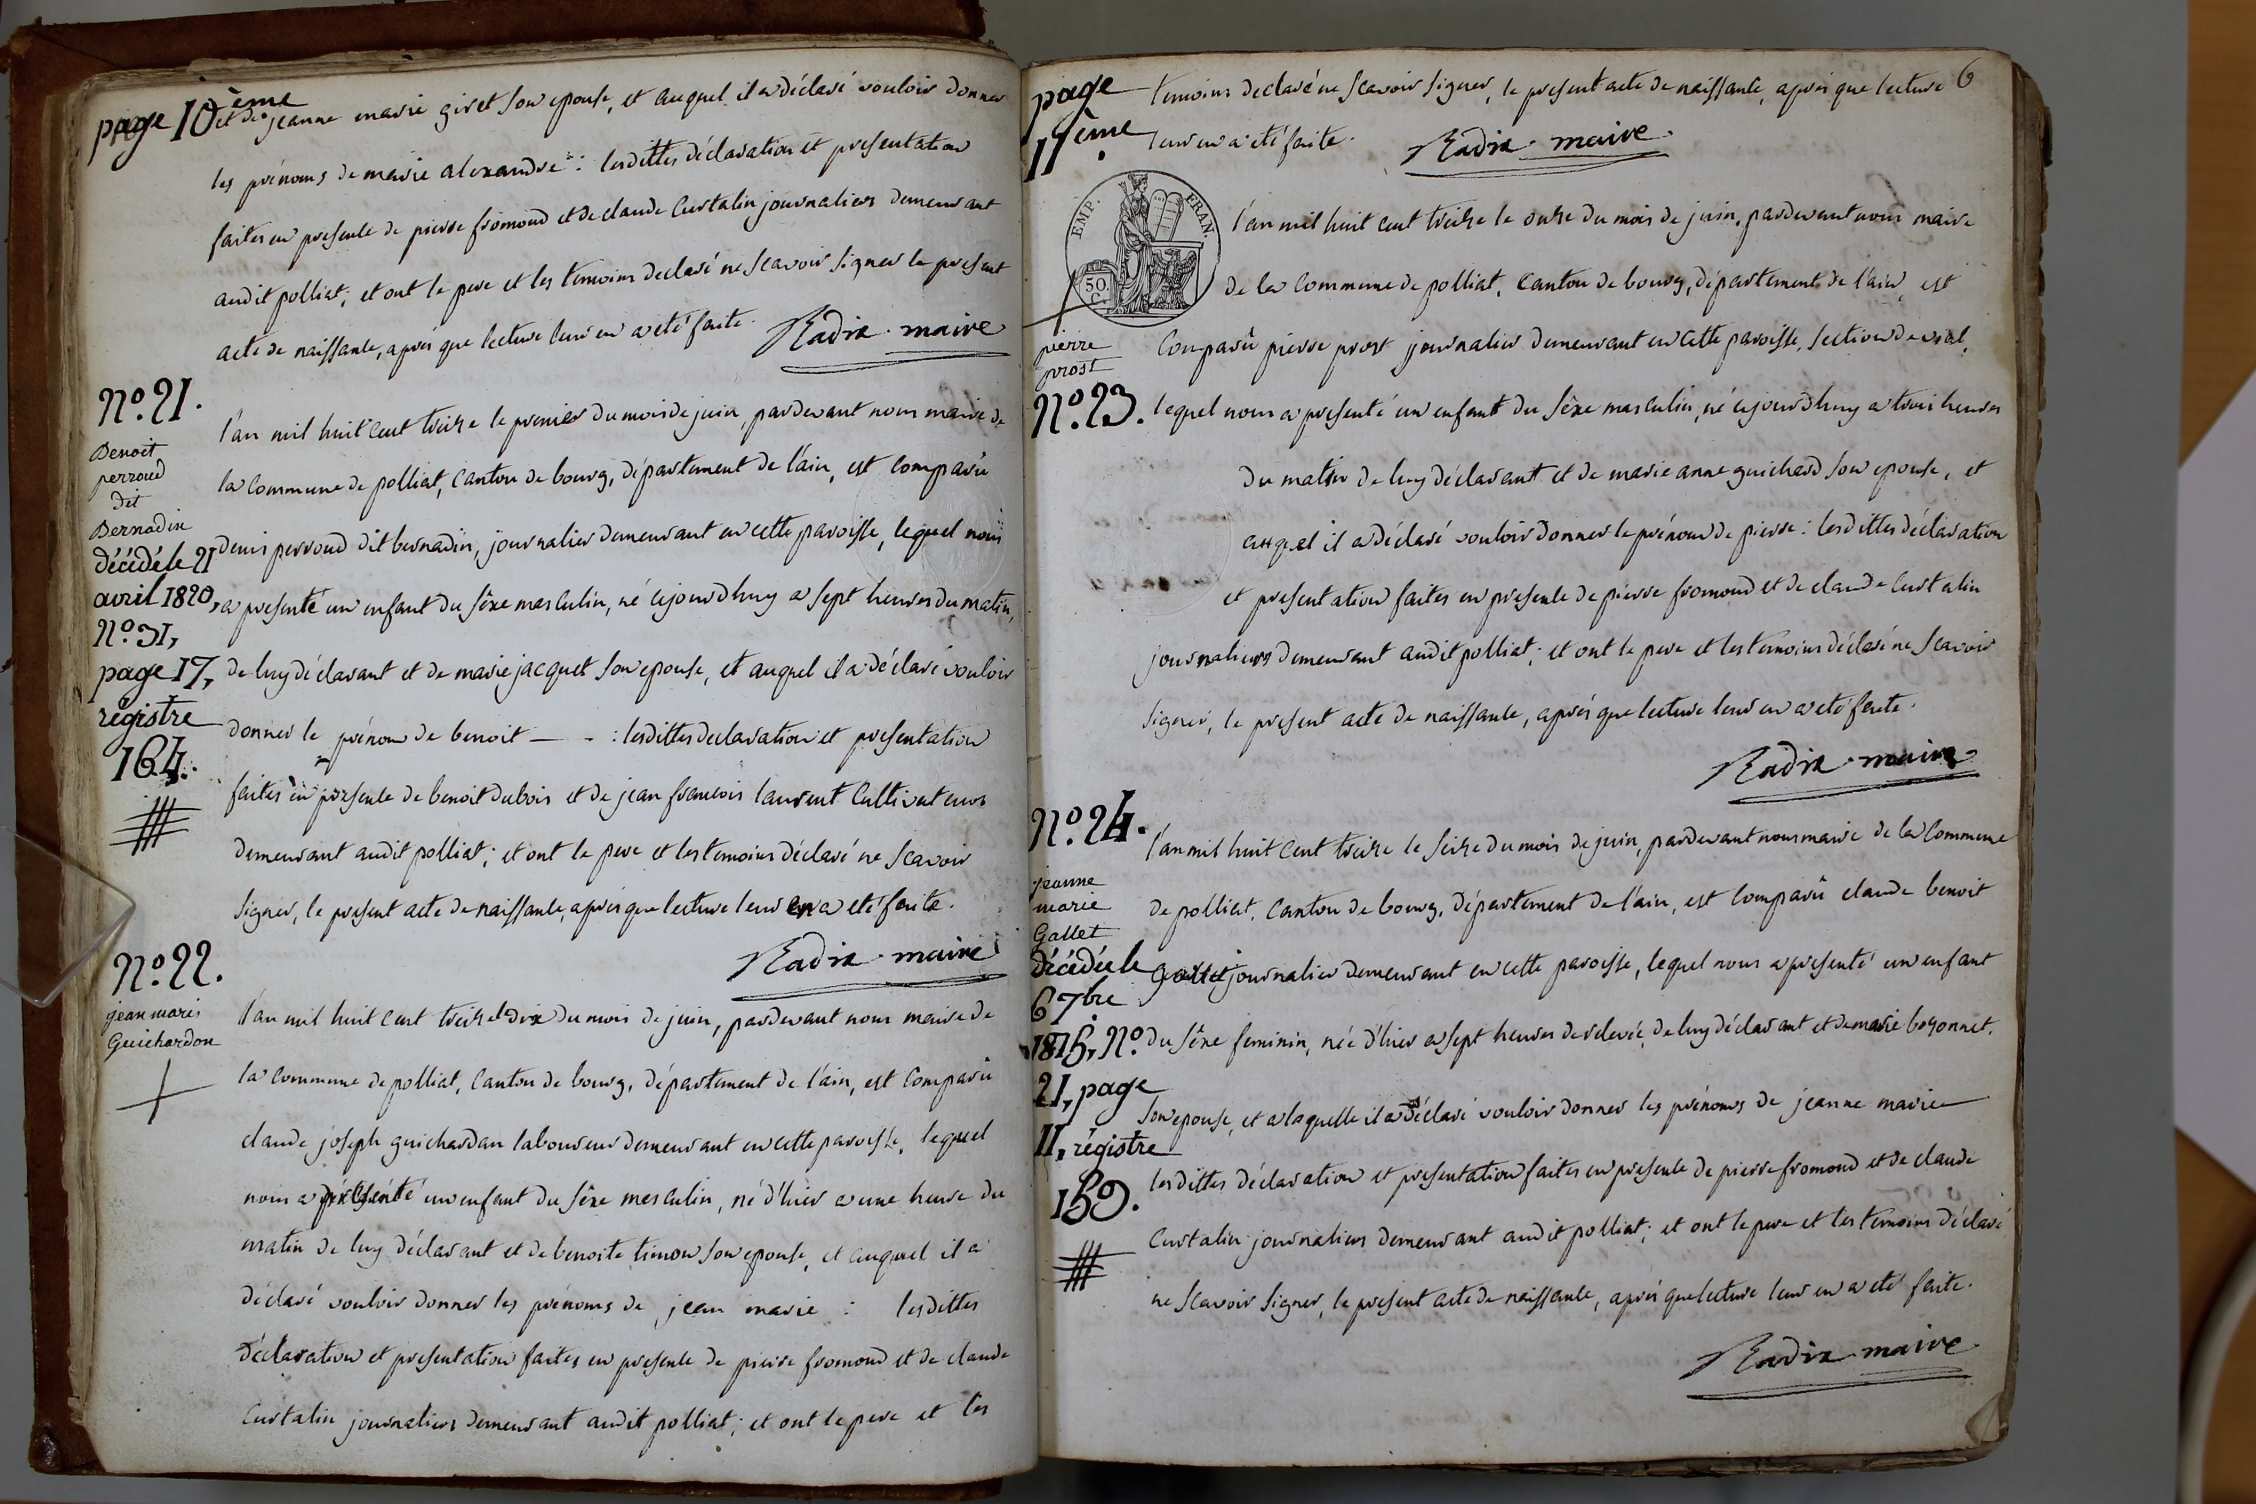 page 10ème
et de jeanne marie giret son epouse, et auquel il a déclaré vouloir donner
les prénoms de marie alexandre : lesdittes déclaration et presentation
faites en presence de pierre fromond et de claude Curtalin journaliers demeurant
audit polliat; et ont le pere et les temoins declaré ne scavoir signer le present
acte de naissance, aprés que lecture leur en a eté faite.
Radix maire
N.º 21.
Benoit
perroud
dit
Bernadin
décédé le 21
avril 1820,
N.º 31,
page 17,
régistre
164.
l'an mil huit cent treize le premier du mois de juin, pardevant nous maire de
la commune de polliat, canton de bourg, département de l'ain, est comparû
denis perroud dit bernadin, journalier demeurant en cette paroisse, lequel nous
a presenté un enfant du sêxe masculin, né cejourd'huy a sept heures du matin,
de luy déclarant et de marie jacquet son epouse, et auquel il a déclaré vouloir
donner le prénom de benoit — - : lesdittes declaration et presentation
faites en presence de benoit dubois et de jean francois laurent Cultivateurs
demeurant audit polliat; et ont le pere et les temoins déclaré ne scavoir
signer, le present acte de naissance, aprés que lecture leur en a eté faite.
Radix maire
N.º 22.
jean marie
Guichardon
l'an mil huit cent treize le dix du mois de juin, pardevant nous maire de
la commune de polliat, canton de bourg, département de l'ain, est comparû
claude joseph guichardan laboureur demeurant en cette paroisse, lequel
nous a présenté un enfant du sêxe masculin, né d'hier a une heure du
matin de luy déclarant et de benoite timon son epouse, et auquel il a
déclaré vouloir donner les prénoms de jean marie : lesdittes
déclaration et presentation faites en presence de pierre fromond et de claude
Curtalin journaliers demeurant audit polliat; et ont le pere et les
page
11ème
6
temoins declaré ne scavoir signer, le present acte de naissance, aprés que lecture
leur en a eté faite.
Radix maire
EMP. FRAN.
50.
C.
pierre
prost
N.º 23.
l'an mil huit cent treize le onze du mois de juin, pardevant nous maire
de la commune de polliat, canton de bourg, département de l'ain, est
comparû pierre prost journalier demeurant en cette paroisse, section de vial,
lequel nous a presenté un enfant du sêxe masculin, né cejourd'huy a trois heures
du matin de luy déclarant et de marie anne guichard son epouse, et
auquel il a déclaré vouloir donner le prénom de pierre : lesdittes déclaration
et presentation faites en presence de pierre fromond et de claude Curtalin
journaliers demeurant audit polliat; et ont le pere et les temoins déclaré ne scavoir
signer, le present acte de naissance, aprés que lecture leur en a eté faite.
Radix maire
N.º 24.
jeanne
marie
Gallet
décédée le
6 7bre
1815, N.º
21, page
11, régistre
159.
l'an mil huit cent treize le seize du mois de juin, pardevant nous maire de la commune
de polliat, canton de bourg, département de l'ain, est comparû claude benoit
gallet journalier demeurant en cette paroisse, lequel nous a presenté un enfant
du sêxe feminin, née d'hier a sept heures de relevée, de luy déclarant et de marie boyonnet,
son epouse, et a laquelle il a déclaré vouloir donner les prénoms de jeanne marie
lesdittes déclaration et presentation faites en presence de pierre fromond et de claude
Curtalin journaliers demeurant audit polliat; et ont le pere et les temoins déclaré
ne scavoir signer, le present acte de naissance, aprés que lecture leur en a eté faite.
Radix maire